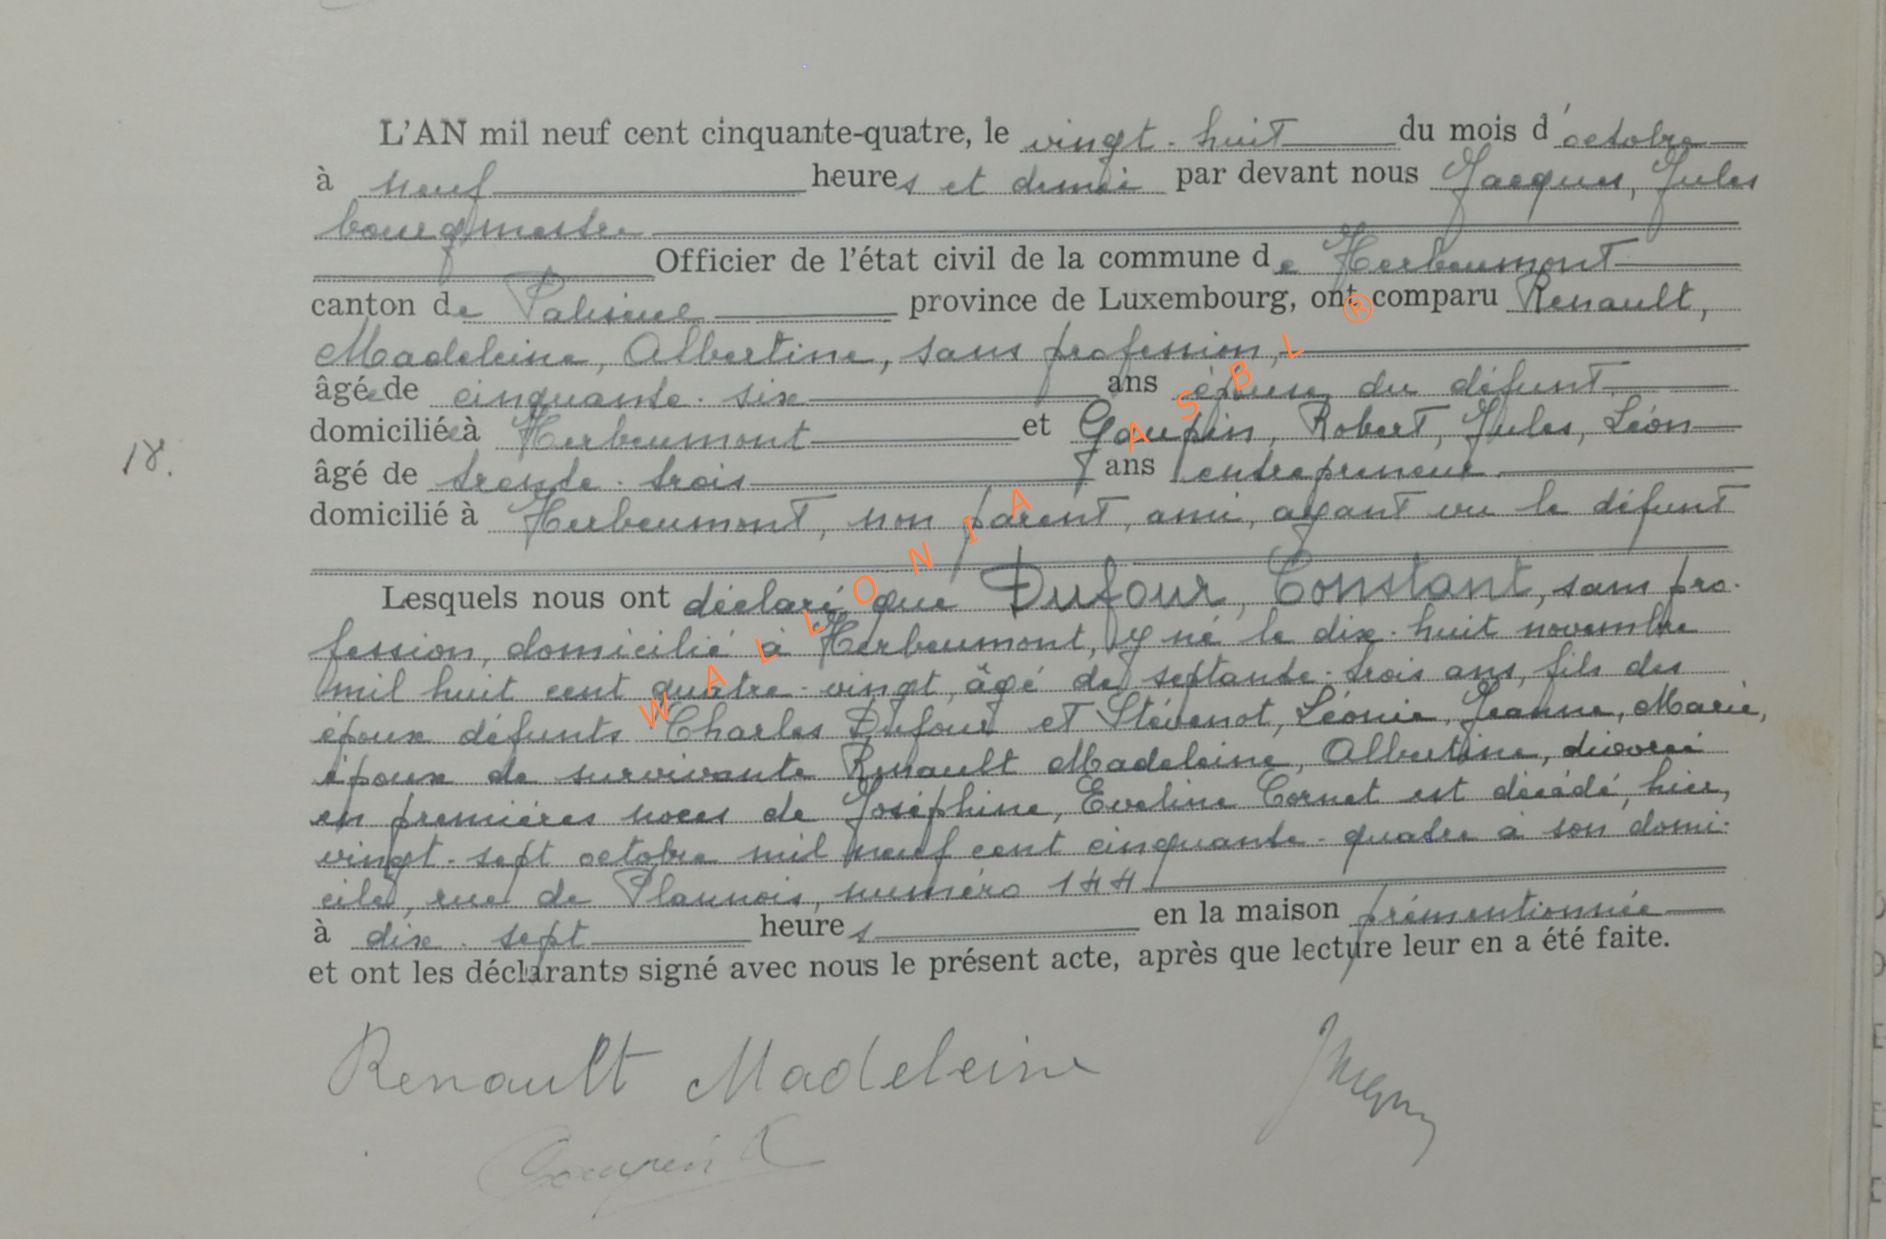 L'AN mil neuf cent cinquante-quatre, le vingt-huit du mois d'octobre
à neuf heures et demie par devant nous Jacques, Jules
bourgmestre
Officier de l'état civil de la commune de Herbeumont
canton de Paliseul province de Luxembourg, ont comparu Renault,
Madeleine, Albertine, sans profession,
âgée de cinquante-six ans épouse du défunt
domiciliée à Herbeumont et Goupin, Robert, Jules, Léon
18.
âgé de trente-trois ans entrepreneur
domicilié à Herbeumont, non parent, ami, ayant vu le défunt
Lesquels nous ont déclaré que Dufour, Constant, sans pro-
fession, domicilié à Herbeumont, y né le dix-huit novembre
mil huit cent quatre-vingt, âgé de septante-trois ans, fils des
époux défunts Charles Dufour et Stévenot, Léonie, Jeanne, Marie,
époux de survivante Renault Madeleine, Albertine, divorcé
en premières noces de Joséphine, Eveline Cornet est décédé, hier,
vingt-sept octobre mil neuf cent cinquante-quatre à son domi-
cile, rue de Plaunois, numéro 144
à dix-sept heures en la maison prémentionnée
et ont les déclarants signé avec nous le présent acte, après que lecture leur en a été faite.
Renault Madeleine
Jacques
Goupin R
WALLONIA ASBL ®